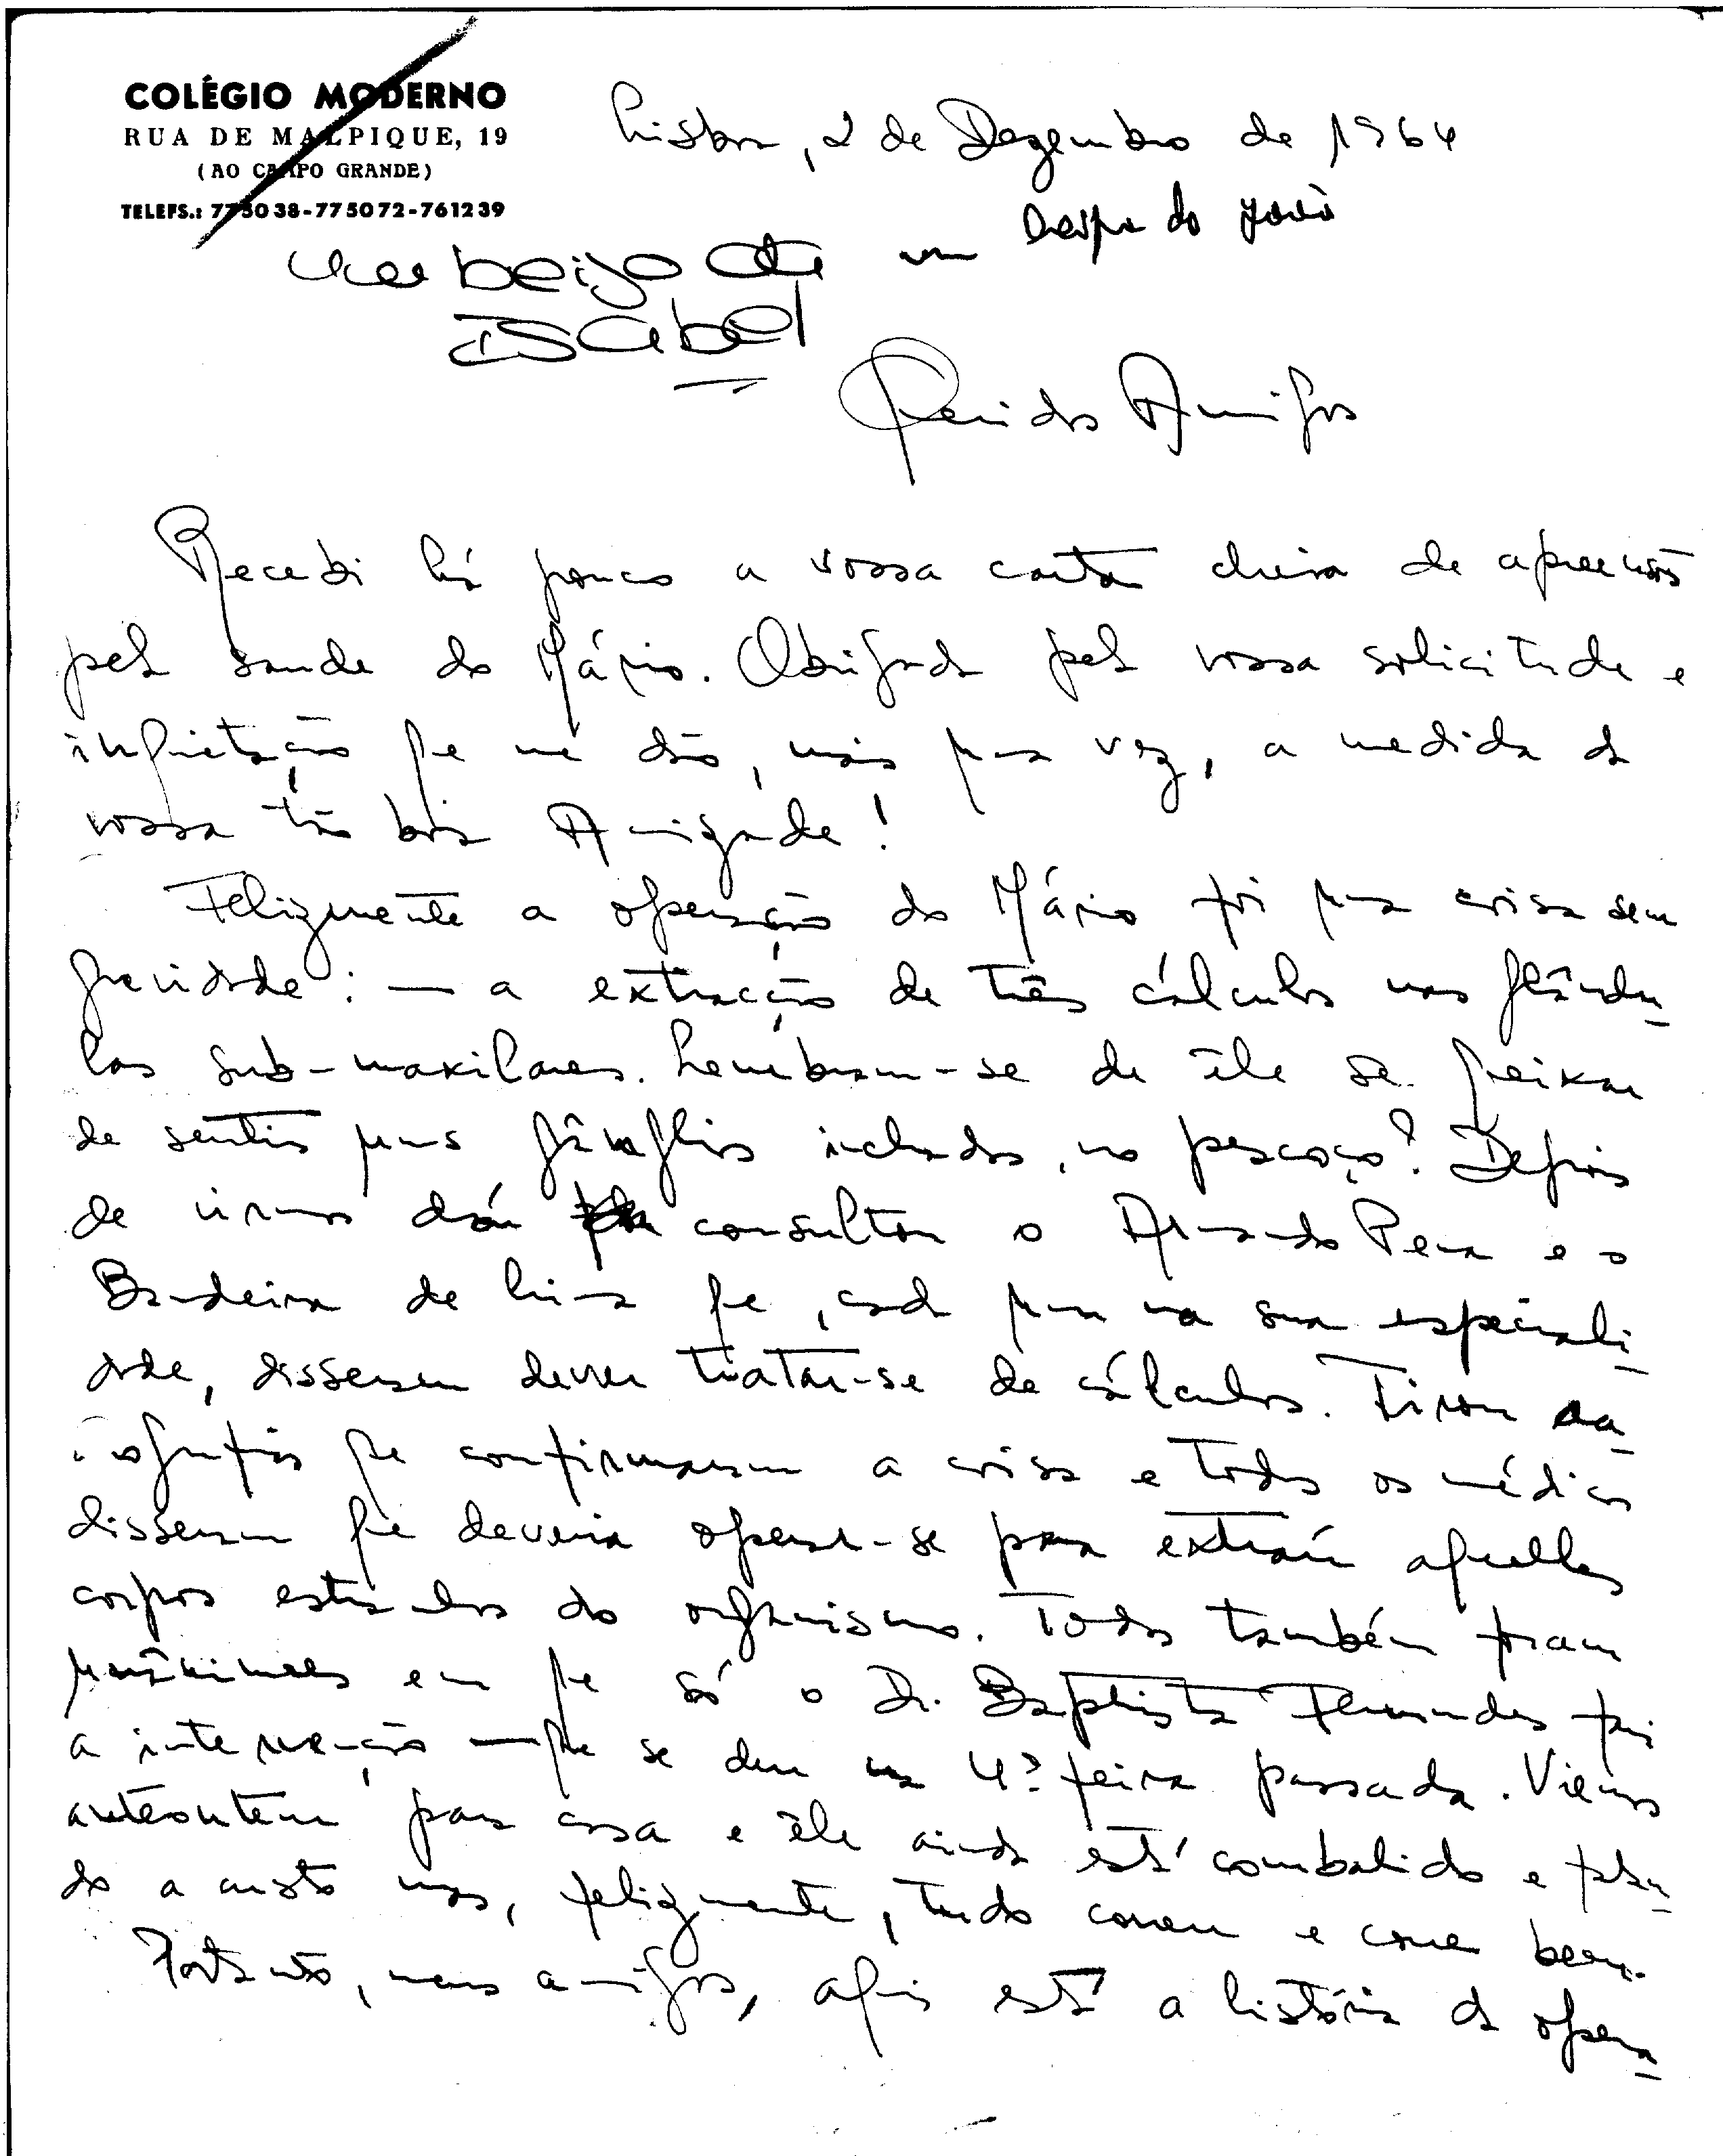 COLÉGIO MODERNO
RUA DE MALPIQUE, 19
(AO CAMPO GRANDE)
TELEFS.: 775038-775072-761239
Lisboa, 2 de Dezembro de 1964
um do João
um beijo da
Isabel
Queridos Amigos
Recebi há pouco a vossa carta cheia de apreensões
pela saude do Mário. Obrigada pela vossa solicitude e
inquietação que me dão, mais uma vez, a medida da
vossa tão boa Amizade!
Felizmente a operação do Mário foi uma coisa sem
gravidade: — a extracção de três cálculos nas glându-
las sub-maxilares. Lembram-se de êle se queixar
de sentir uns gânglios inchados, no pescoço? Depois
de virmos daí consultou o Armando Pena e o
Bandeira de Lima que, cada um na sua especiali-
dade, disseram dever tratar-se de cálculos. Tirou ra-
diografias que confirmaram a coisa e todos os médicos
disseram que deveria operar-se para extrair aquelles
corpos estranhos do organismo. Todos também foram
unânimes em que só o Dr. Baptista Fernandes
a intervenção — que se deu na 4ª feira passada. Viemos
anteontem para casa e êle ainda está combalido e falan-
do a custo mas, felizmente, tudo correu e corre bem.
Portanto, meus amigos, aqui está a história da opera-